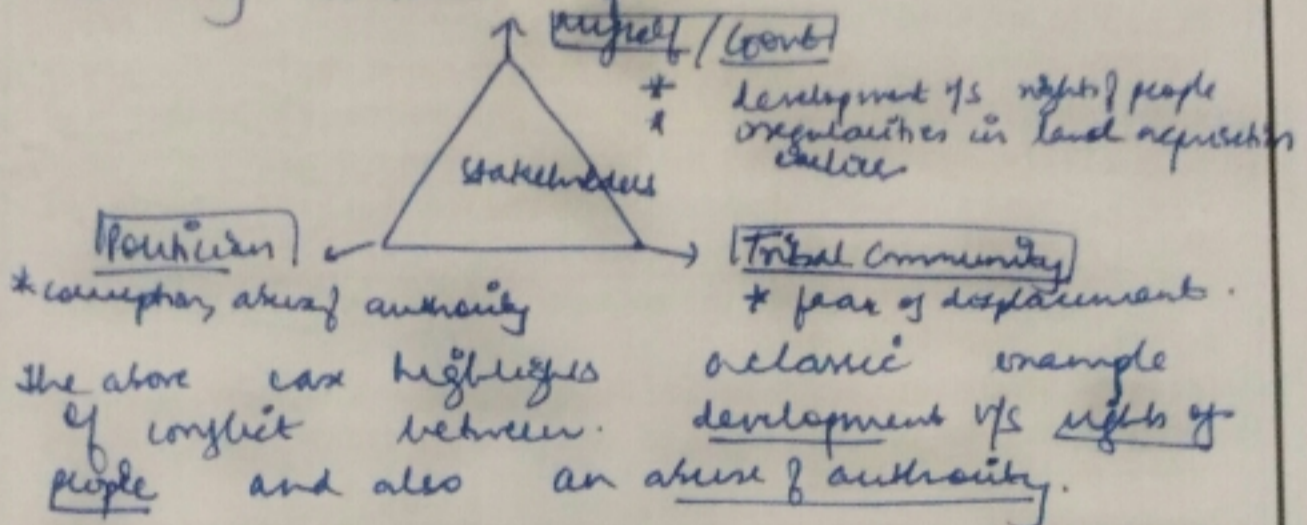 Myself / Govt
* development v/s rights of people
* irregularities in land acquisition
earlier
Stakeholders
Politician
Tribal Community
* corruption, abuse of authority
* fear of displacement.
The above case highlights a classic example
of conflict between development v/s rights of
people and also an abuse of authority.